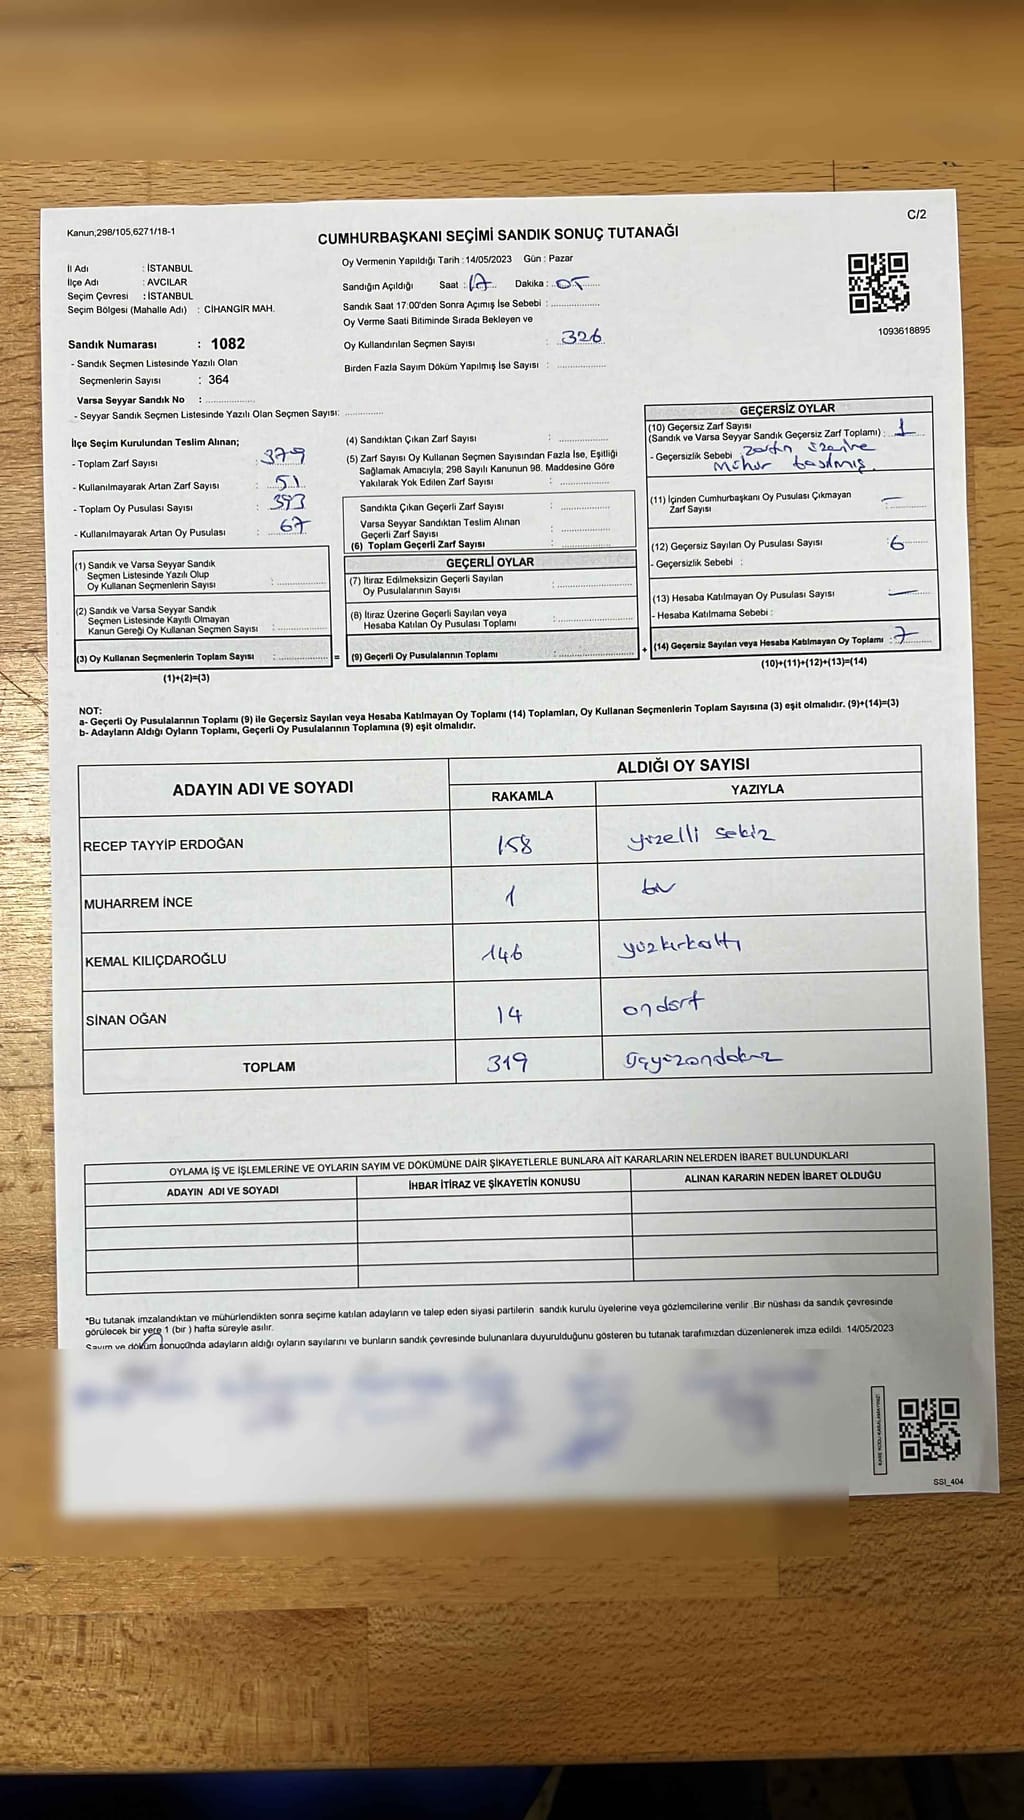 Kanun,298/105,6271/18-1
C/2
CUMHURBAŞKANI SEÇİMİ SANDIK SONUÇ TUTANAĞI
İl Adı : İSTANBUL
İlçe Adı : AVCILAR
Seçim Çevresi : İSTANBUL
Seçim Bölgesi (Mahalle Adı) : CİHANGİR MAH.
Sandık Numarası : 1082
- Sandık Seçmen Listesinde Yazılı Olan
Seçmenlerin Sayısı : 364
Varsa Seyyar Sandık No :
- Seyyar Sandık Seçmen Listesinde Yazılı Olan Seçmen Sayısı:
Oy Vermenin Yapıldığı Tarih :14/05/2023 Gün : Pazar
Sandığın Açıldığı Saat : 17 Dakika : 05
Sandık Saat 17:00'den Sonra Açımış İse Sebebi :
Oy Verme Saati Bitiminde Sırada Bekleyen ve
Oy Kullandırılan Seçmen Sayısı : 326
Birden Fazla Sayım Döküm Yapılmış İse Sayısı :
1093618895
İlçe Seçim Kurulundan Teslim Alınan;
- Toplam Zarf Sayısı : 379
- Kullanılmayarak Artan Zarf Sayısı : 51
- Toplam Oy Pusulası Sayısı : 393
- Kullanılmayarak Artan Oy Pusulası : 67
(1) Sandık ve Varsa Seyyar Sandık
Seçmen Listesinde Yazılı Olup
Oy Kullanan Seçmenlerin Sayısı :
(2) Sandık ve Varsa Seyyar Sandık
Seçmen Listesinde Kayıtlı Olmayan
Kanun Gereği Oy Kullanan Seçmen Sayısı :
(3) Oy Kullanan Seçmenlerin Toplam Sayısı : =
(1)+(2)=(3)
(4) Sandıktan Çıkan Zarf Sayısı :
(5) Zarf Sayısı Oy Kullanan Seçmen Sayısından Fazla İse, Eşitliği
Sağlamak Amacıyla; 298 Sayılı Kanunun 98. Maddesine Göre
Yakılarak Yok Edilen Zarf Sayısı :
Sandıkta Çıkan Geçerli Zarf Sayısı :
Varsa Seyyar Sandıktan Teslim Alınan
Geçerli Zarf Sayısı :
(6) Toplam Geçerli Zarf Sayısı :
GEÇERLİ OYLAR
(7) İtiraz Edilmeksizin Geçerli Sayılan
Oy Pusulalarının Sayısı :
(8) İtiraz Üzerine Geçerli Sayılan veya
Hesaba Katılan Oy Pusulası Toplamı :
(9) Geçerli Oy Pusulalarının Toplamı : +
GEÇERSİZ OYLAR
(10) Geçersiz Zarf Sayısı
(Sandık ve Varsa Seyyar Sandık Geçersiz Zarf Toplamı) : 1
- Geçersizlik Sebebi : zarfın üzerine
mühür basılmış.
(11) İçinden Cumhurbaşkanı Oy Pusulası Çıkmayan
Zarf Sayısı : —
(12) Geçersiz Sayılan Oy Pusulası Sayısı : 6
- Geçersizlik Sebebi :
(13) Hesaba Katılmayan Oy Pusulası Sayısı : —
- Hesaba Katılmama Sebebi :
(14) Geçersiz Sayılan veya Hesaba Katılmayan Oy Toplamı : 7
(10)+(11)+(12)+(13)=(14)
NOT:
a- Geçerli Oy Pusulalarının Toplamı (9) ile Geçersiz Sayılan veya Hesaba Katılmayan Oy Toplamı (14) Toplamları, Oy Kullanan Seçmenlerin Toplam Sayısına (3) eşit olmalıdır. (9)+(14)=(3)
b- Adayların Aldığı Oyların Toplamı, Geçerli Oy Pusulalarının Toplamına (9) eşit olmalıdır.
ADAYIN ADI VE SOYADI ALDIĞI OY SAYISI
RAKAMLA YAZIYLA
RECEP TAYYİP ERDOĞAN 158 yüzelli sekiz
MUHARREM İNCE 1 bir
KEMAL KILIÇDAROĞLU 146 yüzkırkaltı
SİNAN OĞAN 14 ondört
TOPLAM 319 üçyüzondokuz
OYLAMA İŞ VE İŞLEMLERİNE VE OYLARIN SAYIM VE DÖKÜMÜNE DAİR ŞİKAYETLERLE BUNLARA AİT KARARLARIN NELERDEN İBARET BULUNDUKLARI
ADAYIN ADI VE SOYADI İHBAR İTİRAZ VE ŞİKAYETİN KONUSU ALINAN KARARIN NEDEN İBARET OLDUĞU
*Bu tutanak imzalandıktan ve mühürlendikten sonra seçime katılan adayların ve talep eden siyasi partilerin sandık kurulu üyelerine veya gözlemcilerine verilir .Bir nüshası da sandık çevresinde
görülecek bir yere 1 (bir ) hafta süreyle asılır.
Sayım ve döküm sonucunda adayların aldığı oyların sayılarını ve bunların sandık çevresinde bulunanlara duyurulduğunu gösteren bu tutanak tarafımızdan düzenlenerek imza edildi. 14/05/2023
KARE KODU KARALAMAYINIZ!
SSI_404